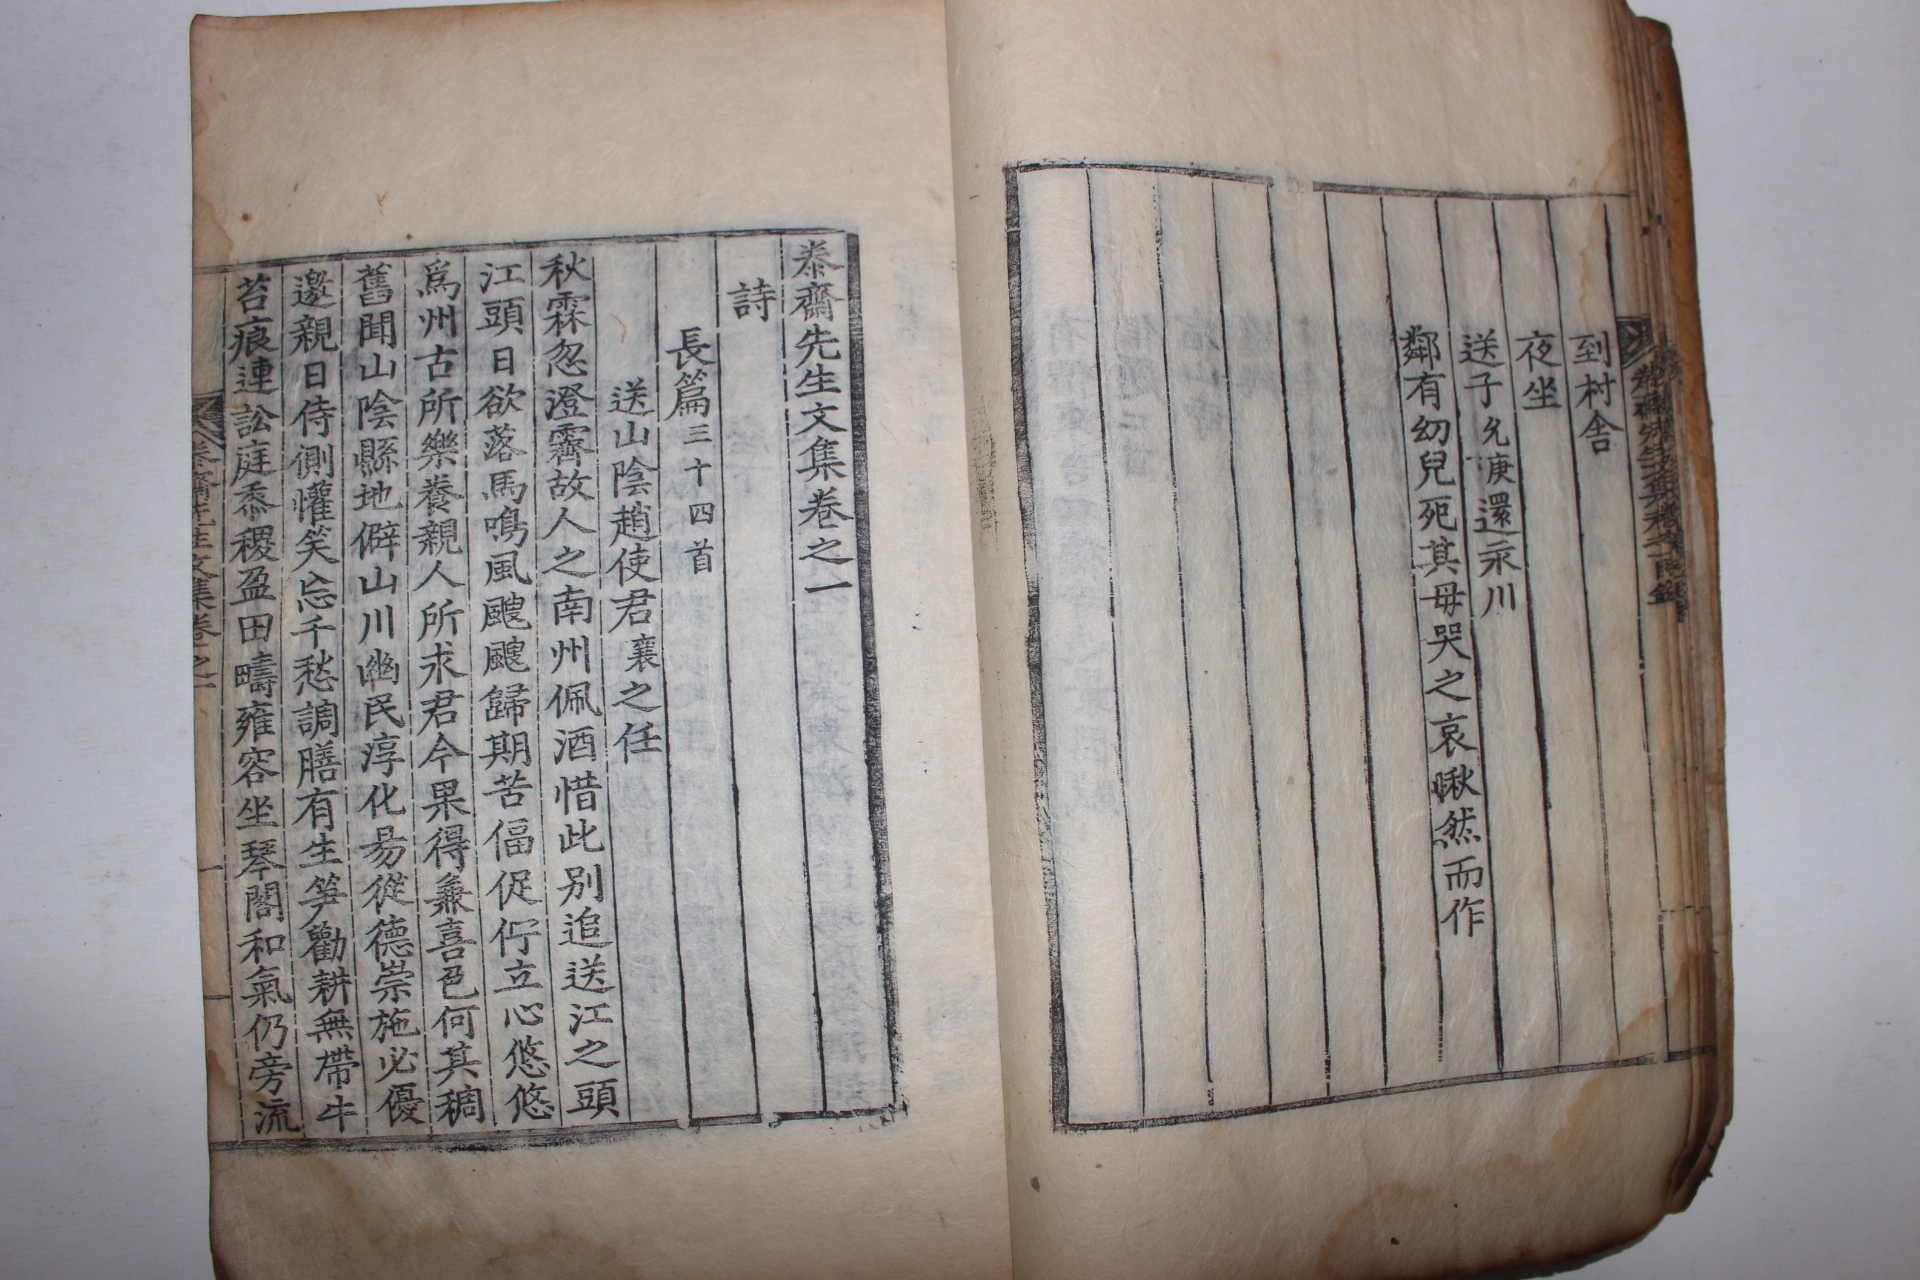 到村舍
夜坐
送子允庚還永川
鄰有幼兒死其母哭之哀愀然而作
泰齋先生文集卷之一
詩
長篇三十四首
送山陰趙使君襄之任
秋霖忽澄霽故人之南州佩酒惜此別追送江之頭
江頭日欲落馬鳴風颼颼歸期苦偪促佇立心悠悠
爲州古所樂養親人所求君今果得兼喜色何其稠
舊聞山陰縣地僻山川幽民淳化易從德崇施必優
邀親日侍側懽笑忘千愁調膳有生笋勸耕無帶牛
苔痕連訟庭黍稷盈田疇雍容坐琴閣和氣仍旁流
泰齋先生文集卷之一
一